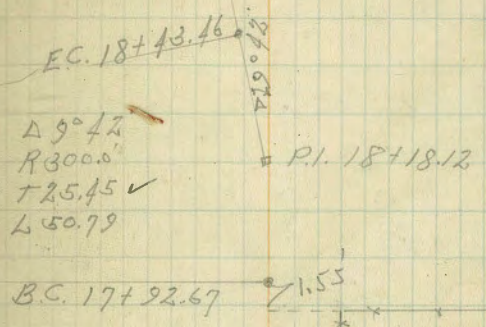 E.C. 18+43.46
Δ 9°42
Δ 9°42
R 300.0'
T 25.45 ✓
L 50.79
P.I. 18+18.12
1.55'
B.C. 17+92.67